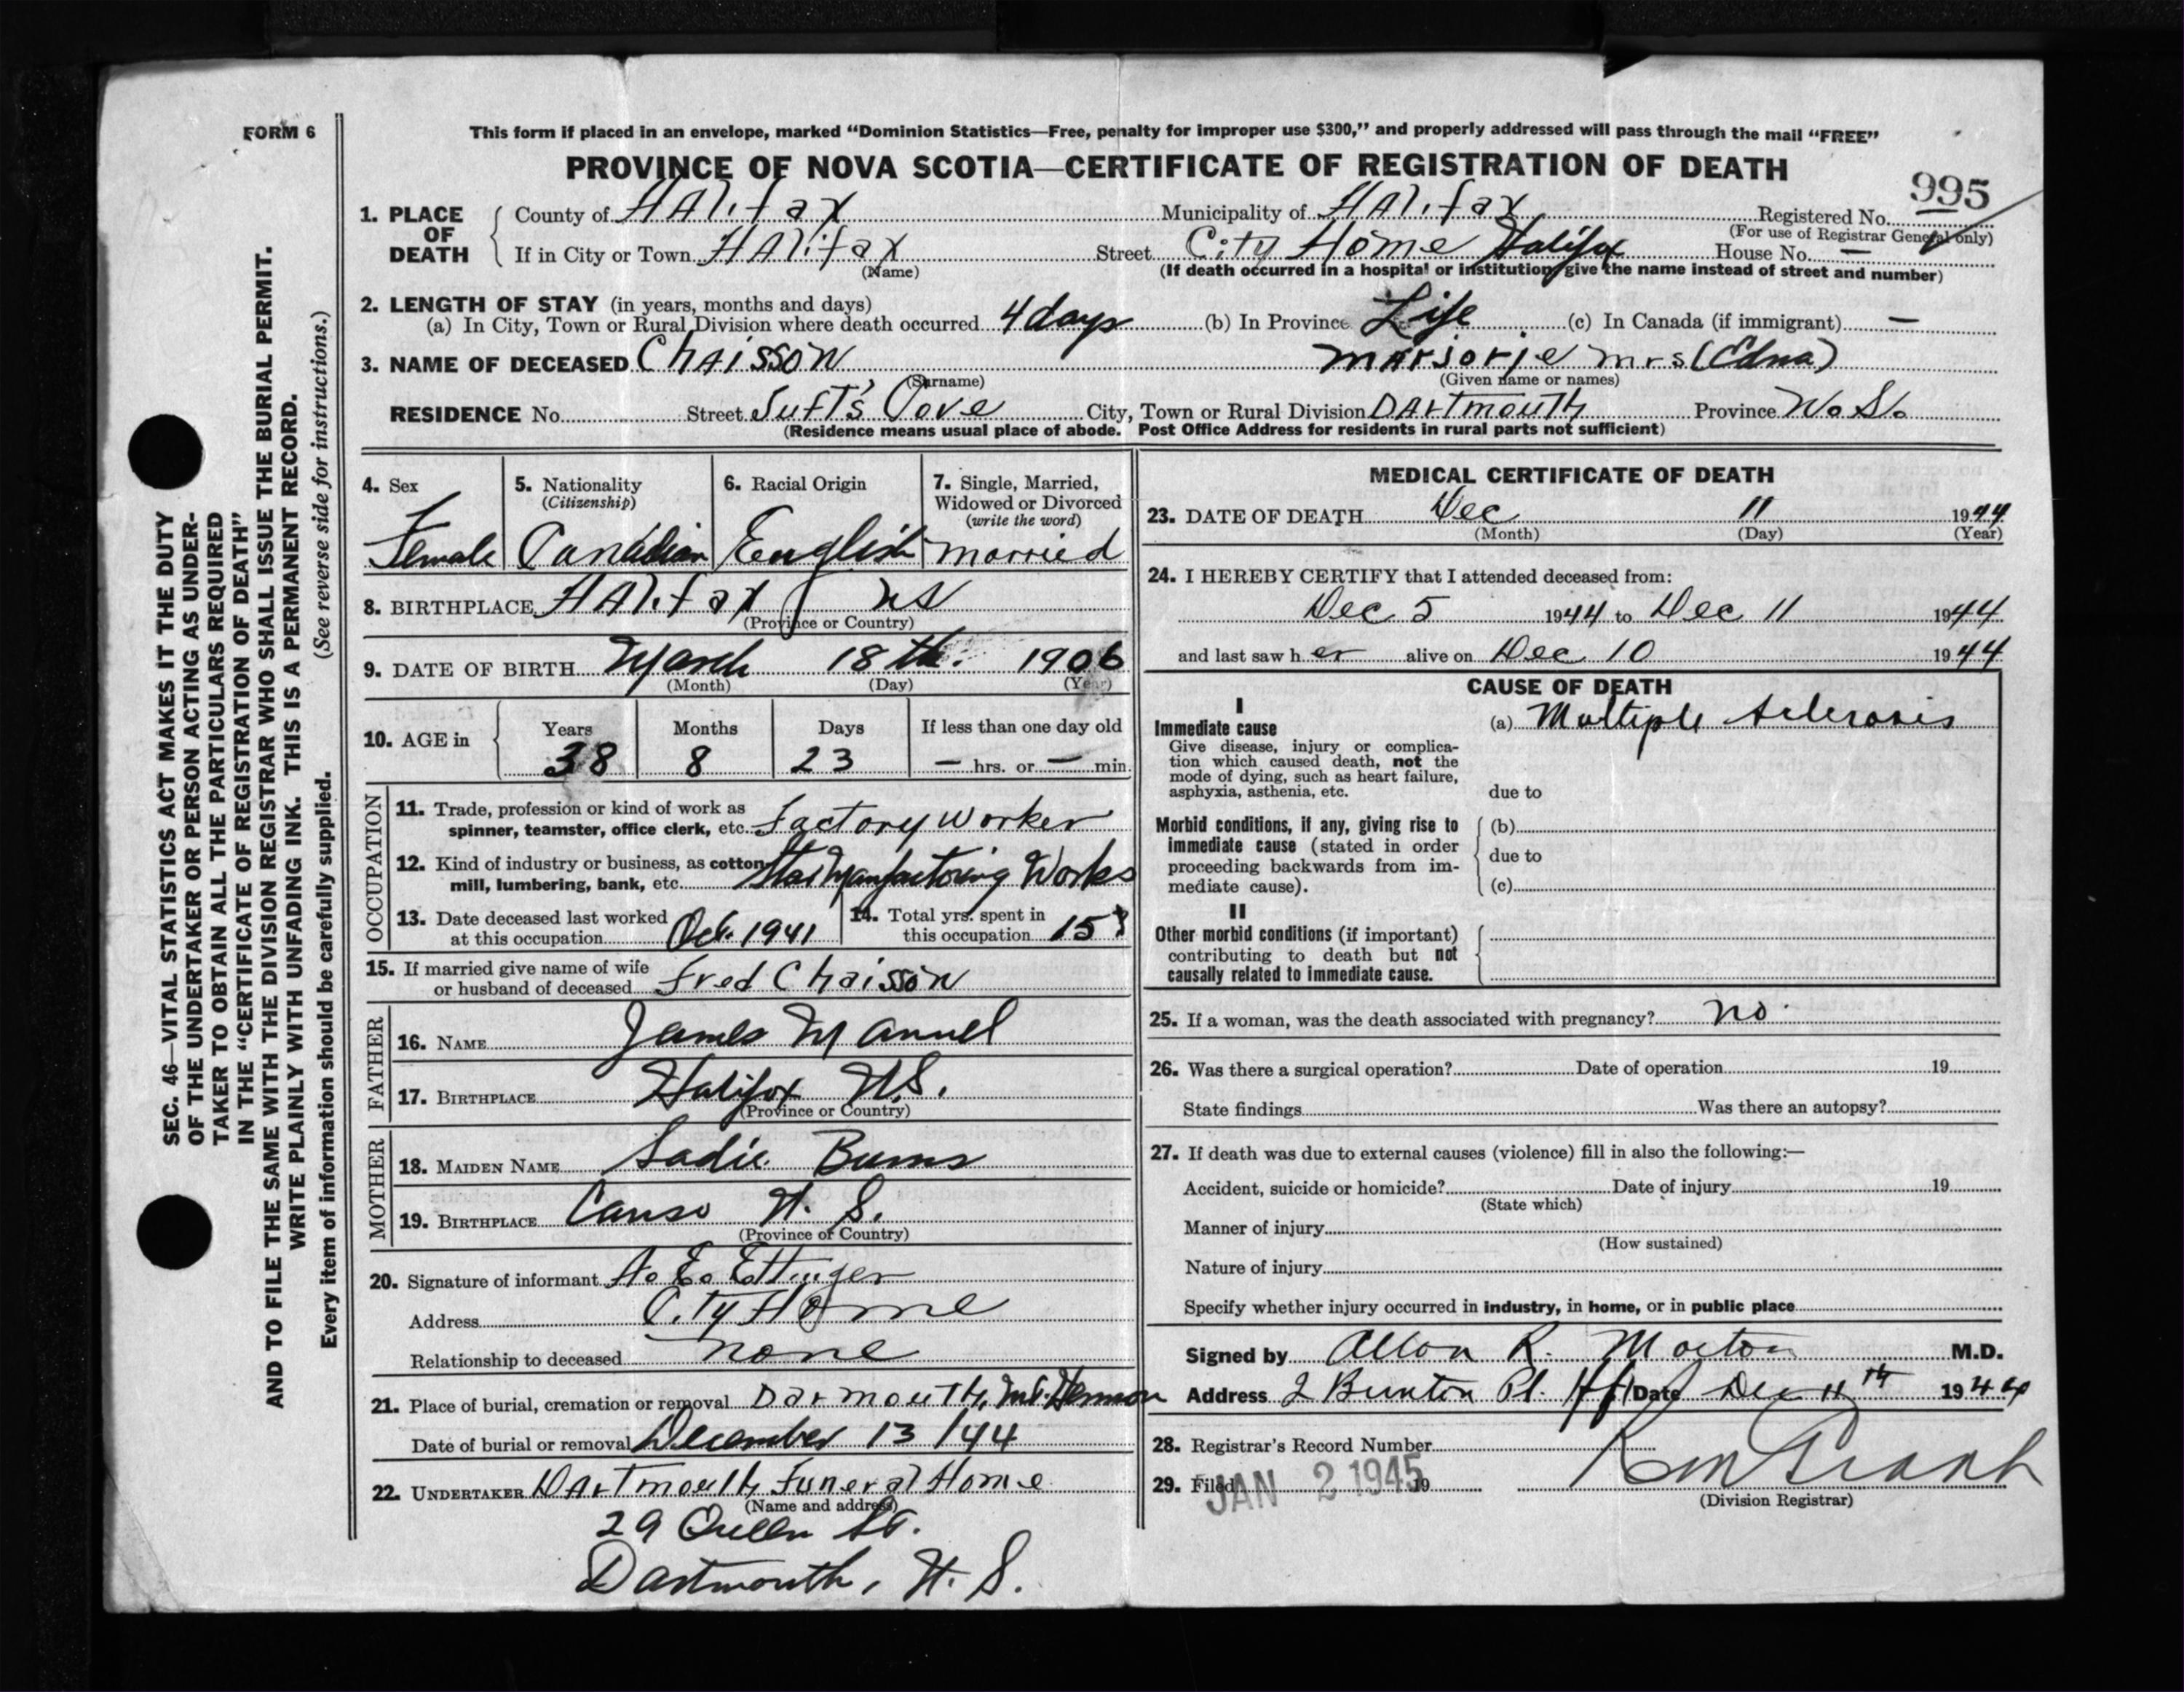 FORM 6
This form if placed in an envelope, marked “Dominion Statistics—Free, penalty for improper use $300,” and properly addressed will pass through the mail “FREE”
PROVINCE OF NOVA SCOTIA—CERTIFICATE OF REGISTRATION OF DEATH
995
1. PLACE OF DEATH County of Halifax Municipality of Halifax Registered No.
(For use of Registrar General only)
If in City or Town Halifax Street City Home Halifax House No. —
(Name) (If death occurred in a hospital or institution give the name instead of street and number)
2. LENGTH OF STAY (in years, months and days)
(a) In City, Town or Rural Division where death occurred 4 days (b) In Province Life (c) In Canada (if immigrant) —
3. NAME OF DECEASED Chaisson Marjorie Mrs (Edna)
(Surname) (Given name or names)
RESIDENCE No. Street Tuft's Cove City, Town or Rural Division Dartmouth Province N.S.
(Residence means usual place of abode. Post Office Address for residents in rural parts not sufficient)
SEC. 46—VITAL STATISTICS ACT MAKES IT THE DUTY
OF THE UNDERTAKER OR PERSON ACTING AS UNDER-
TAKER TO OBTAIN ALL THE PARTICULARS REQUIRED
IN THE “CERTIFICATE OF REGISTRATION OF DEATH”
AND TO FILE THE SAME WITH THE DIVISION REGISTRAR WHO SHALL ISSUE THE BURIAL PERMIT.
WRITE PLAINLY WITH UNFADING INK. THIS IS A PERMANENT RECORD.
Every item of information should be carefully supplied. (See reverse side for instructions.)
4. Sex
Female
5. Nationality
(Citizenship)
Canadian
6. Racial Origin
English
7. Single, Married,
Widowed or Divorced
(write the word)
married
8. BIRTHPLACE Halifax NS
(Province or Country)
9. DATE OF BIRTH March 18th. 1906
(Month) (Day) (Year)
10. AGE in Years Months Days If less than one day old
38 8 23 — hrs. or — min.
OCCUPATION
11. Trade, profession or kind of work as
spinner, teamster, office clerk, etc. Factory Worker
12. Kind of industry or business, as cotton
mill, lumbering, bank, etc. Star Manfactoring Works
13. Date deceased last worked
at this occupation Oct. 1941
14. Total yrs. spent in
this occupation 15
15. If married give name of wife
or husband of deceased Fred Chaisson
FATHER
16. NAME James Mannel
17. BIRTHPLACE Halifax N.S.
(Province or Country)
MOTHER
18. MAIDEN NAME Sadie Burns
19. BIRTHPLACE Canso N. S.
(Province or Country)
20. Signature of informant A. E. Ettinger
Address City Home
Relationship to deceased none
21. Place of burial, cremation or removal Darmouth, Mt. Hermon
Date of burial or removal December 13/44
22. UNDERTAKER Dartmouth Funeral Home
(Name and address)
29 Queen St.
Dartmouth, N. S.
MEDICAL CERTIFICATE OF DEATH
23. DATE OF DEATH Dec 11 1944
(Month) (Day) (Year)
24. I HEREBY CERTIFY that I attended deceased from:
Dec 5 1944 to Dec 11 1944
and last saw her alive on Dec 10 1944
CAUSE OF DEATH
I
Immediate cause
Give disease, injury or complica-
tion which caused death, not the
mode of dying, such as heart failure,
asphyxia, asthenia, etc.
(a) Multiple Sclerosis
due to
Morbid conditions, if any, giving rise to
immediate cause (stated in order
proceeding backwards from im-
mediate cause).
(b)
due to
(c)
II
Other morbid conditions (if important)
contributing to death but not
causally related to immediate cause.
25. If a woman, was the death associated with pregnancy? no
26. Was there a surgical operation? Date of operation 19
State findings Was there an autopsy?
27. If death was due to external causes (violence) fill in also the following:—
Accident, suicide or homicide? Date of injury 19
(State which)
Manner of injury
(How sustained)
Nature of injury
Specify whether injury occurred in industry, in home, or in public place
Signed by Allan R. Morton M.D.
Address 2 Brunton Pl. Hfx Date Dec 11th 1944
28. Registrar's Record Number
29. Filed JAN 2 1945 19
(Division Registrar)